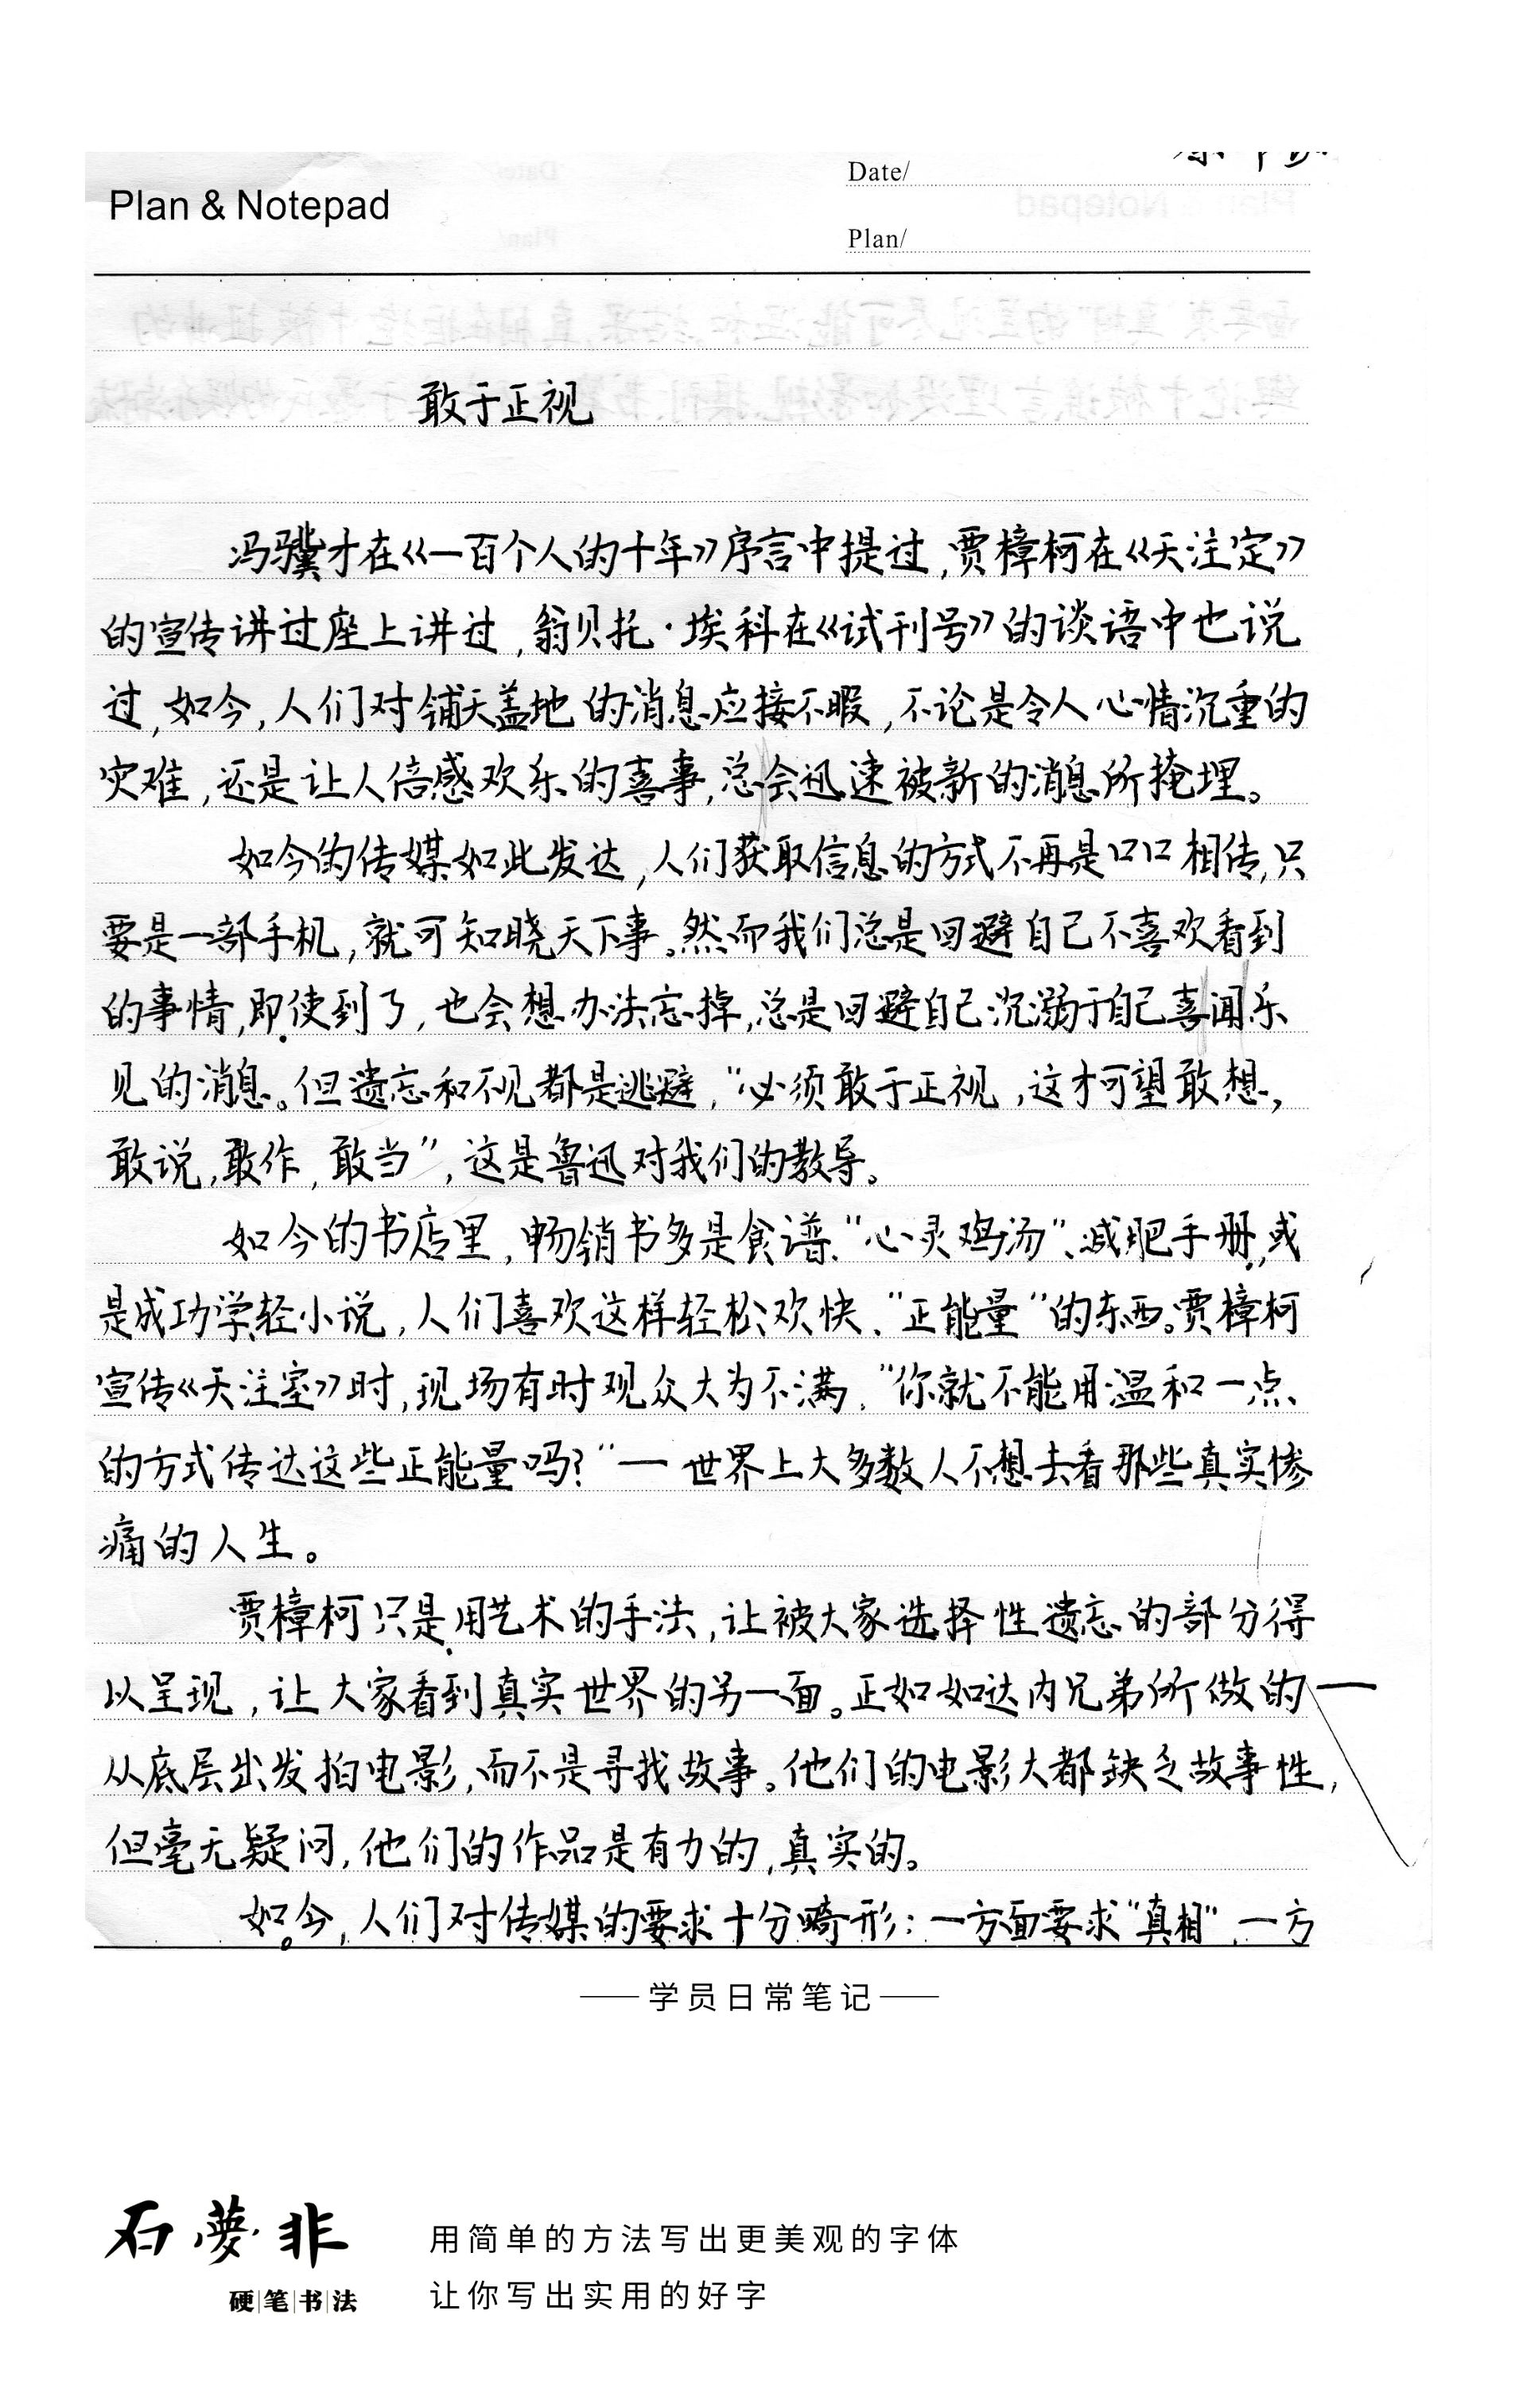 Plan & Notepad
Date/
Plan/
敢于正视
冯骥才在《一百个人的十年》序言中提过,贾樟柯在《天注定》
的宣传讲过座上讲过,翁贝托·埃科在《试刊号》的谈语中也说
过,如今,人们对铺天盖地的消息应接不暇,不论是令人心情沉重的
灾难,还是让人倍感欢乐的喜事,总会迅速被新的消息所掩埋。
如今的传媒如此发达,人们获取信息的方式不再是口口相传,只
要是一部手机,就可知晓天下事。然而我们总是回避自己不喜欢看到
的事情,即使到了,也会想办法忘掉,总是回避自己沉溺于自己喜闻乐
见的消息。但遗忘和不视都是逃避,“必须敢于正视,这才可望敢想,
敢说,敢作,敢当”,这是鲁迅对我们的教导。
如今的书店里,畅销书多是食谱、“心灵鸡汤”、减肥手册,或
是成功学轻小说,人们喜欢这样轻松欢快、“正能量”的东西。贾樟柯
宣传《天注定》时,现场有时观众大为不满,“你就不能用温和一点
的方式传达这些正能量吗?”—世界上大多数人不想去看那些真实惨
痛的人生。
贾樟柯只是用艺术的手法,让被大家选择性遗忘的部分得
以呈现,让大家看到真实世界的另一面。正如如达内兄弟所做的—
从底层出发拍电影,而不是寻找故事。他们的电影大都缺乏故事性,
但毫无疑问,他们的作品是有力的,真实的。
如今,人们对传媒的要求十分畸形:一方面要求“真相”,一方
——学员日常笔记——
石夢非
硬笔书法
用简单的方法写出更美观的字体
让你写出实用的好字